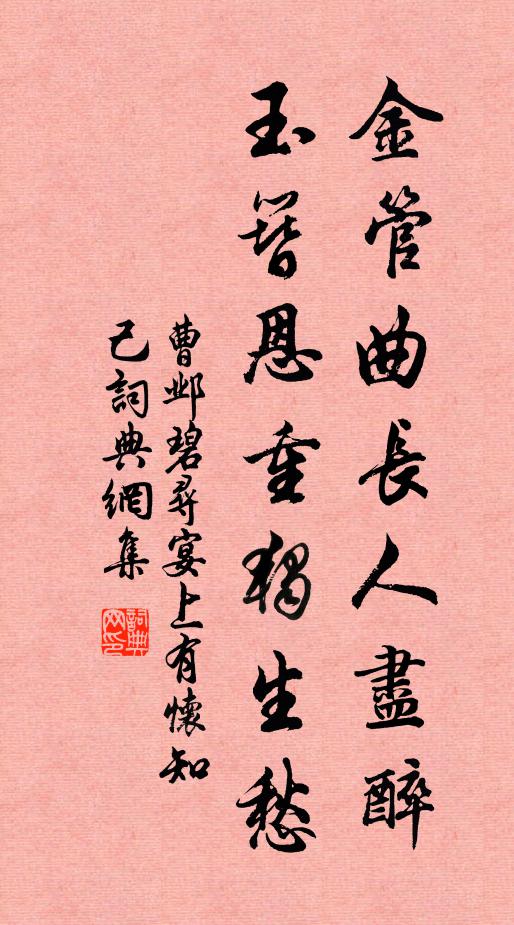 金管曲長人盡醉
玉簪恩重獨生愁
曹邺碧尋宴上有懷知
己詞典網集
詞典
网印